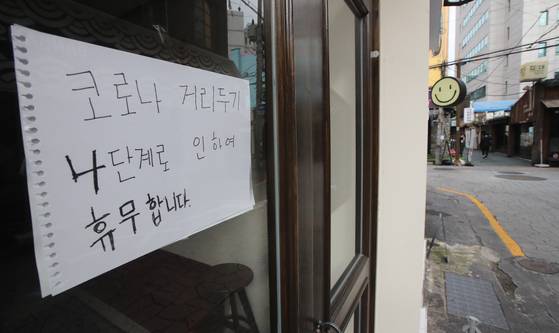 코로나 거리두기
4단계로 인하여
휴무합니다.